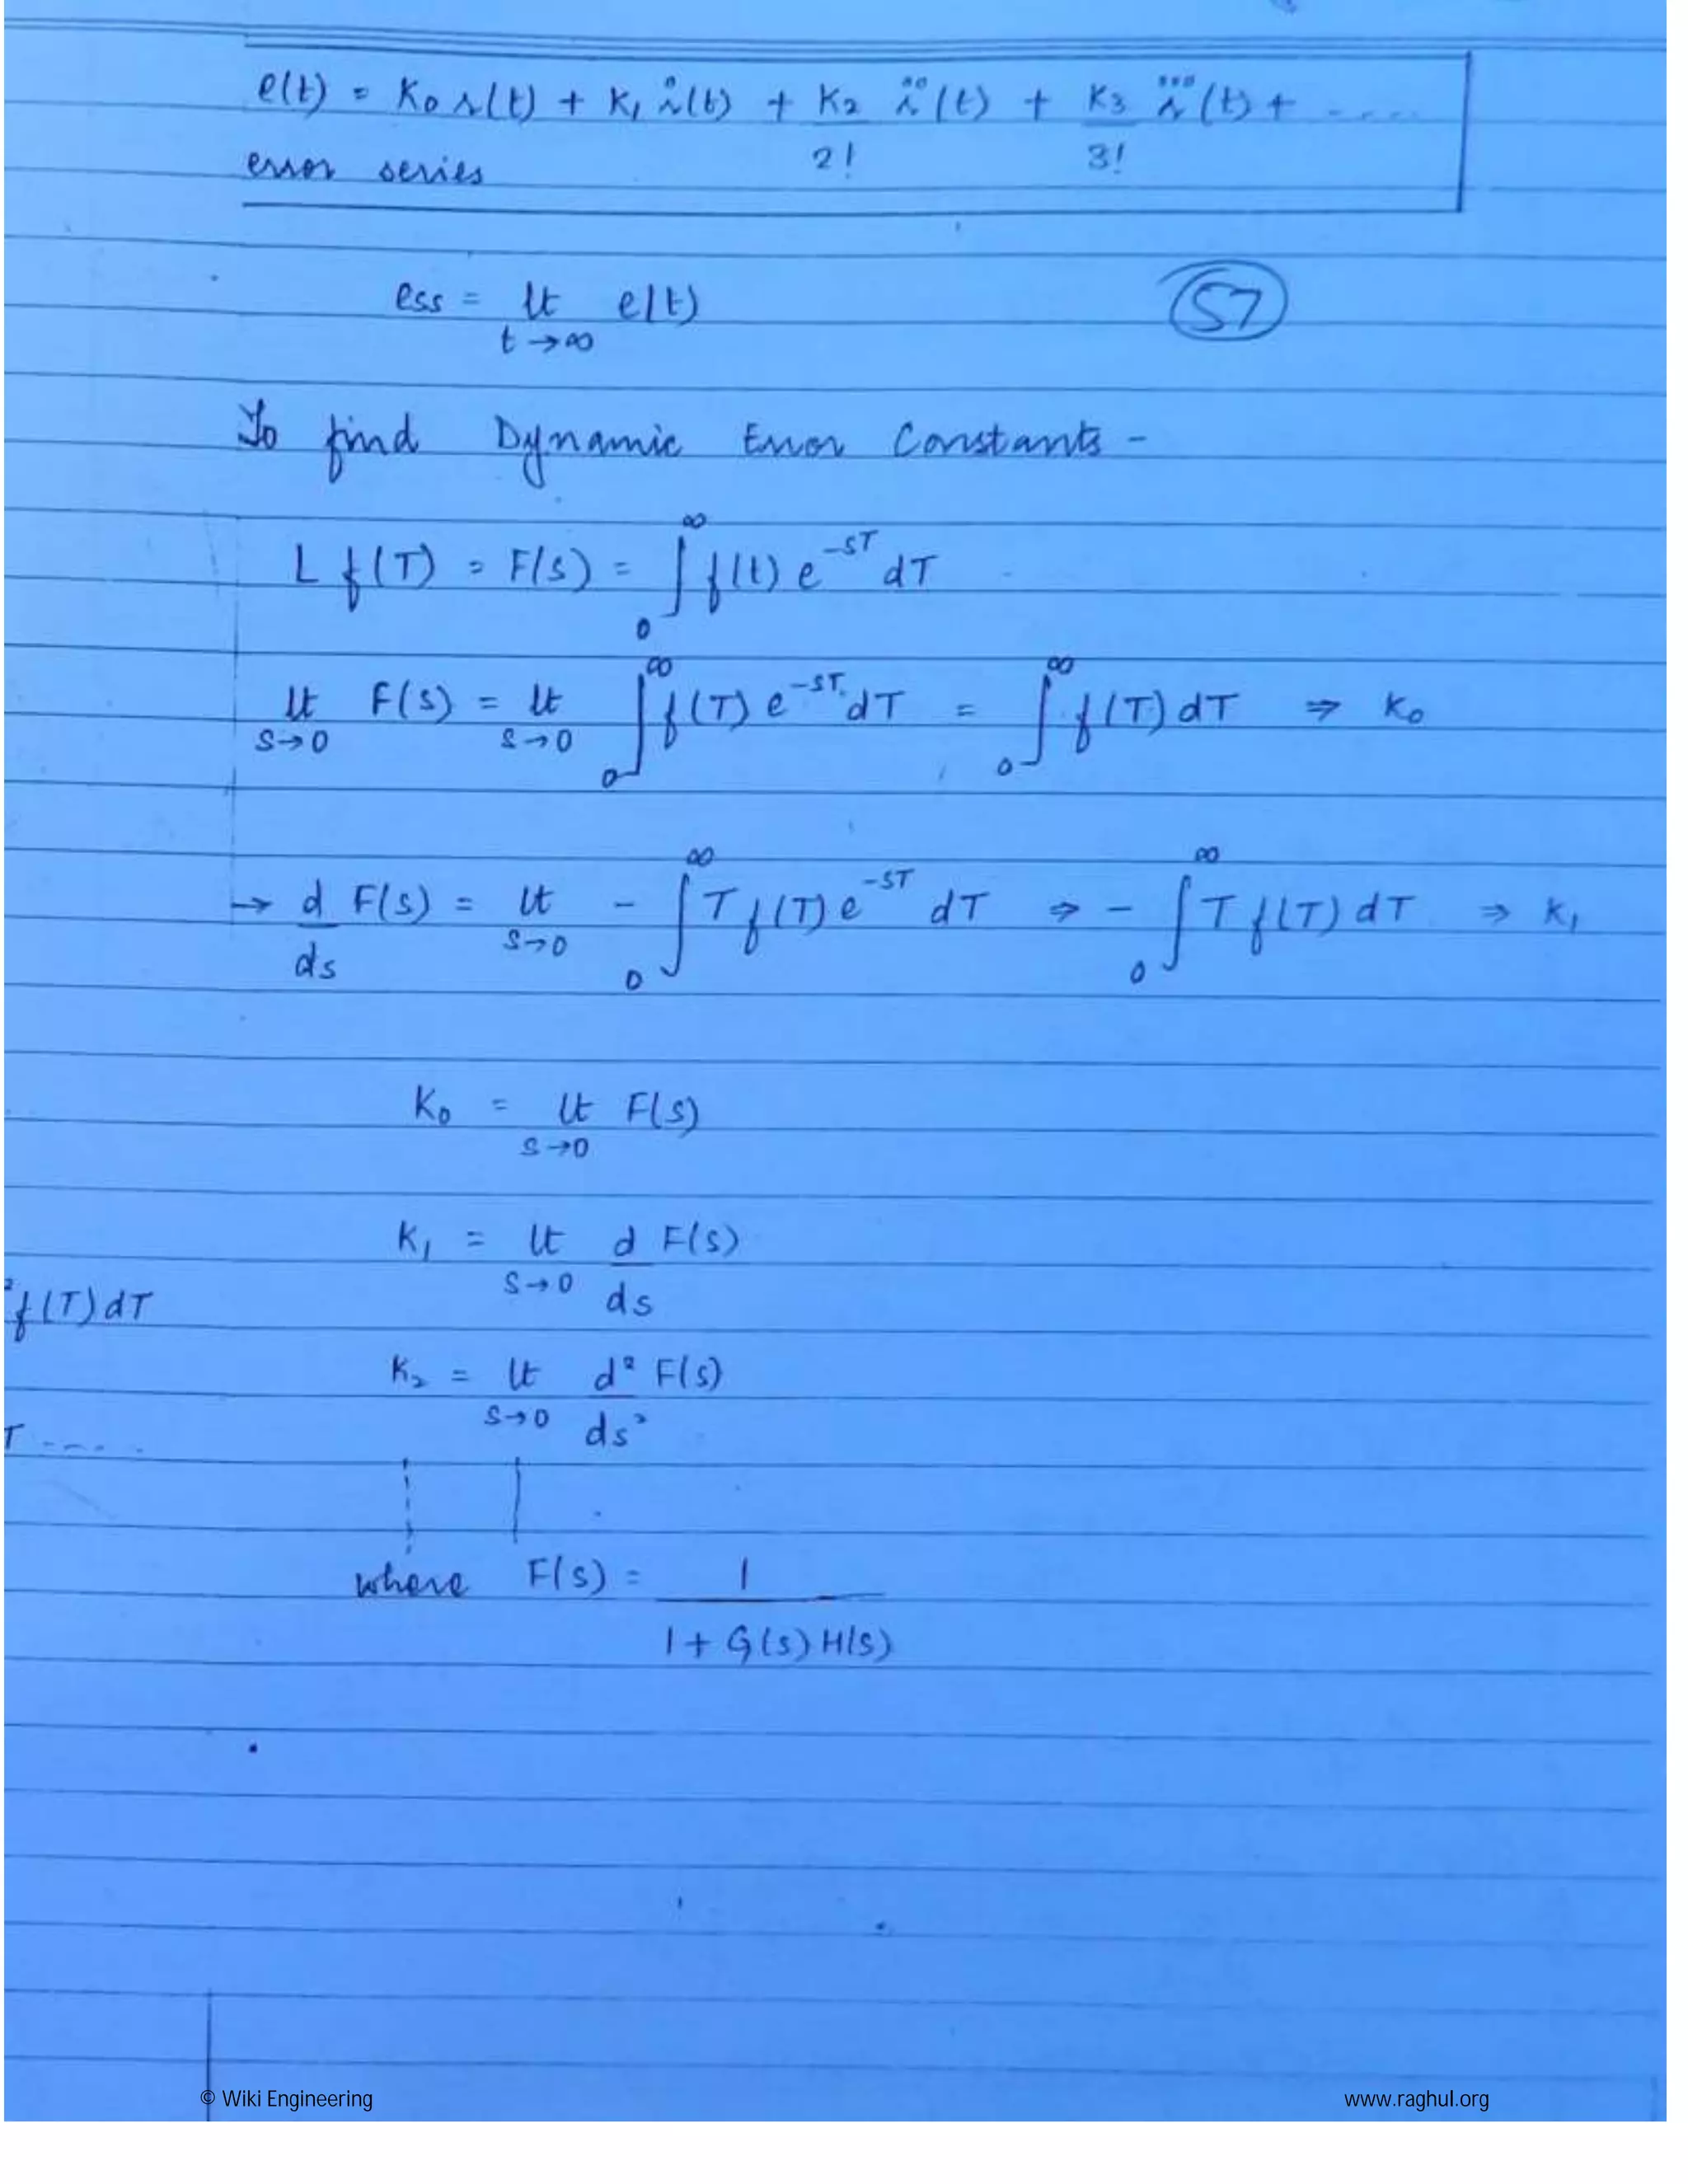 e(t) = K₀ r(t) + K₁ ṙ(t) + K₂/2! r̈(t) + K₃/3! r⃛(t) + ....
error series
ess = lt t→∞ e(t)
57
To find Dynamic Error Constants -
L f(T) = F(s) = ∫₀^∞ f(t) e^-sT dT
lt s→0 F(s) = lt s→0 ∫₀^∞ f(T) e^-sT dT = ∫₀^∞ f(T) dT ⇒ K₀
→ d/ds F(s) = lt s→0 - ∫₀^∞ T f(T) e^-sT dT ⇒ - ∫₀^∞ T f(T) dT ⇒ K₁
K₀ = lt s→0 F(s)
K₁ = lt s→0 d/ds F(s)
² f(T) dT
K₂ = lt s→0 d²/ds² F(s)
T ....
where F(s) = 1/1 + G(s) H(s)
© Wiki Engineering
www.raghul.org